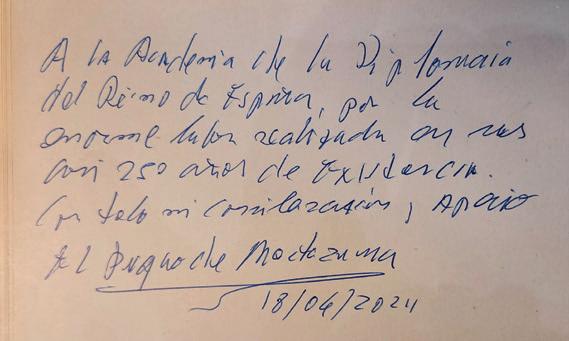 A la Academia de la Diplomacia
del Reino de España, por la
enorme labor realizada en sus
casi 250 años de Existencia.
Con toda mi consideración, y Aprecio
El Duque de Moctezuma
18/04/2024